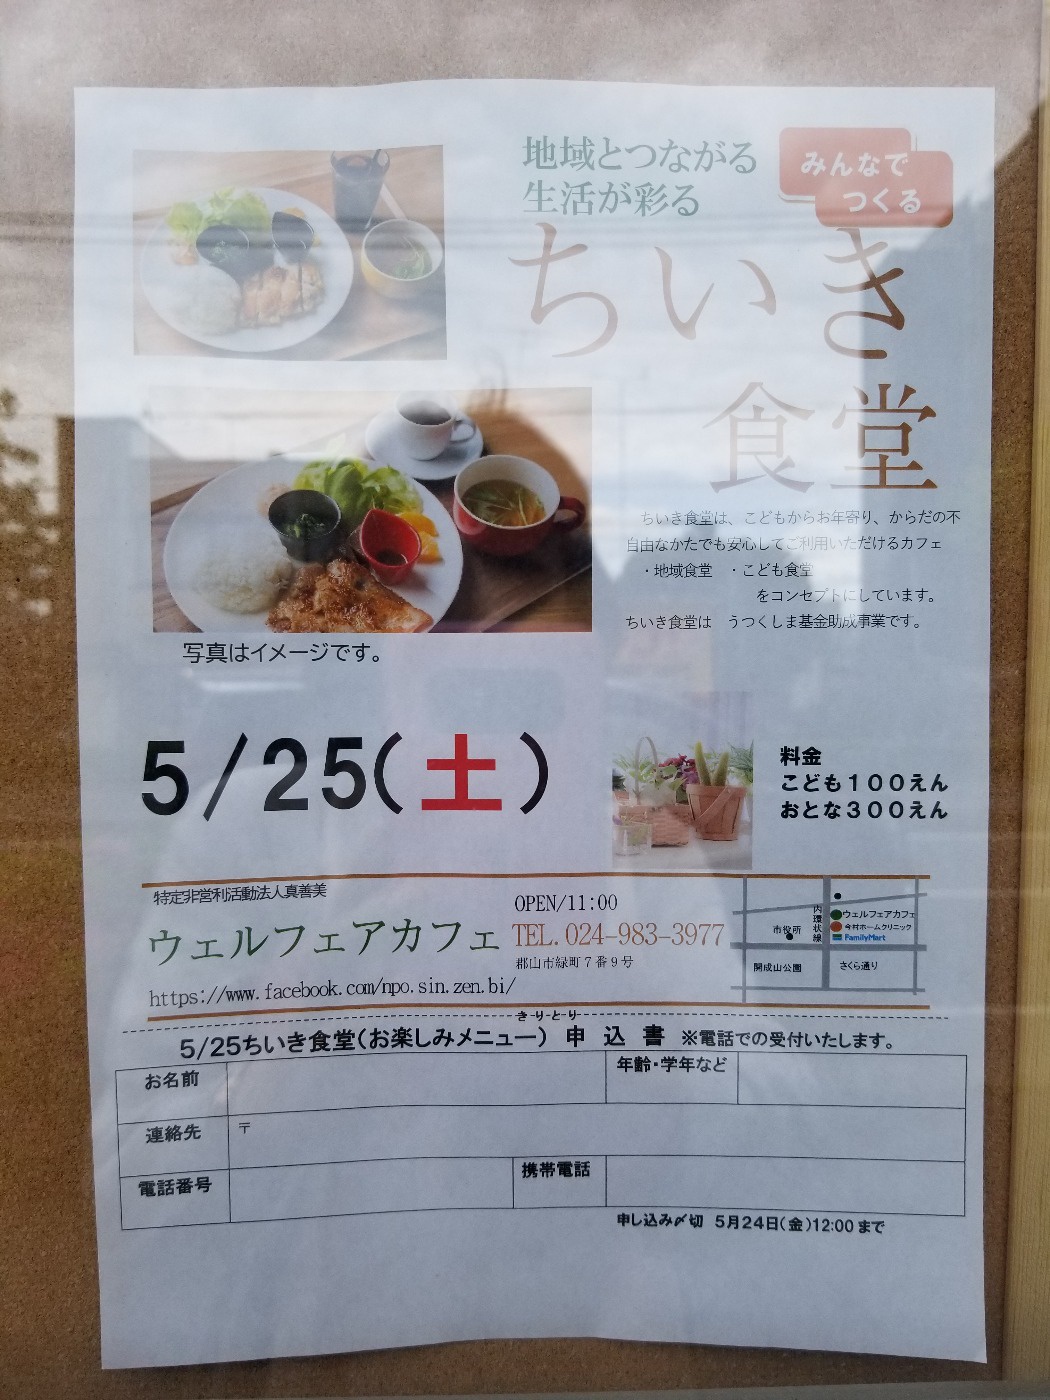 地域とつながる
生活が彩る
みんなで
つくる
ちいき
食堂
ちいき食堂は、こどもからお年寄り、からだの不
自由なかたでも安心してご利用いただけるカフェ
・地域食堂　・こども食堂
をコンセプトにしています。
ちいき食堂は　うつくしま基金助成事業です。
写真はイメージです。
5/25(土)
料金
こども１００えん
おとな３００えん
特定非営利活動法人真善美
ウェルフェアカフェ
https://www.facebook.com/npo.sin.zen.bi/
OPEN/11:00
TEL.024-983-3977
郡山市緑町７番９号
内環状線
市役所
ウェルフェアカフェ
今村ホームクリニック
FamilyMart
開成山公園
さくら通り
きりとり
5/25ちいき食堂(お楽しみメニュー)　申　込　書　※電話での受付いたします。
お名前
年齢・学年など
連絡先
〒
電話番号
携帯電話
申し込み〆切　5月24日(金)12:00まで